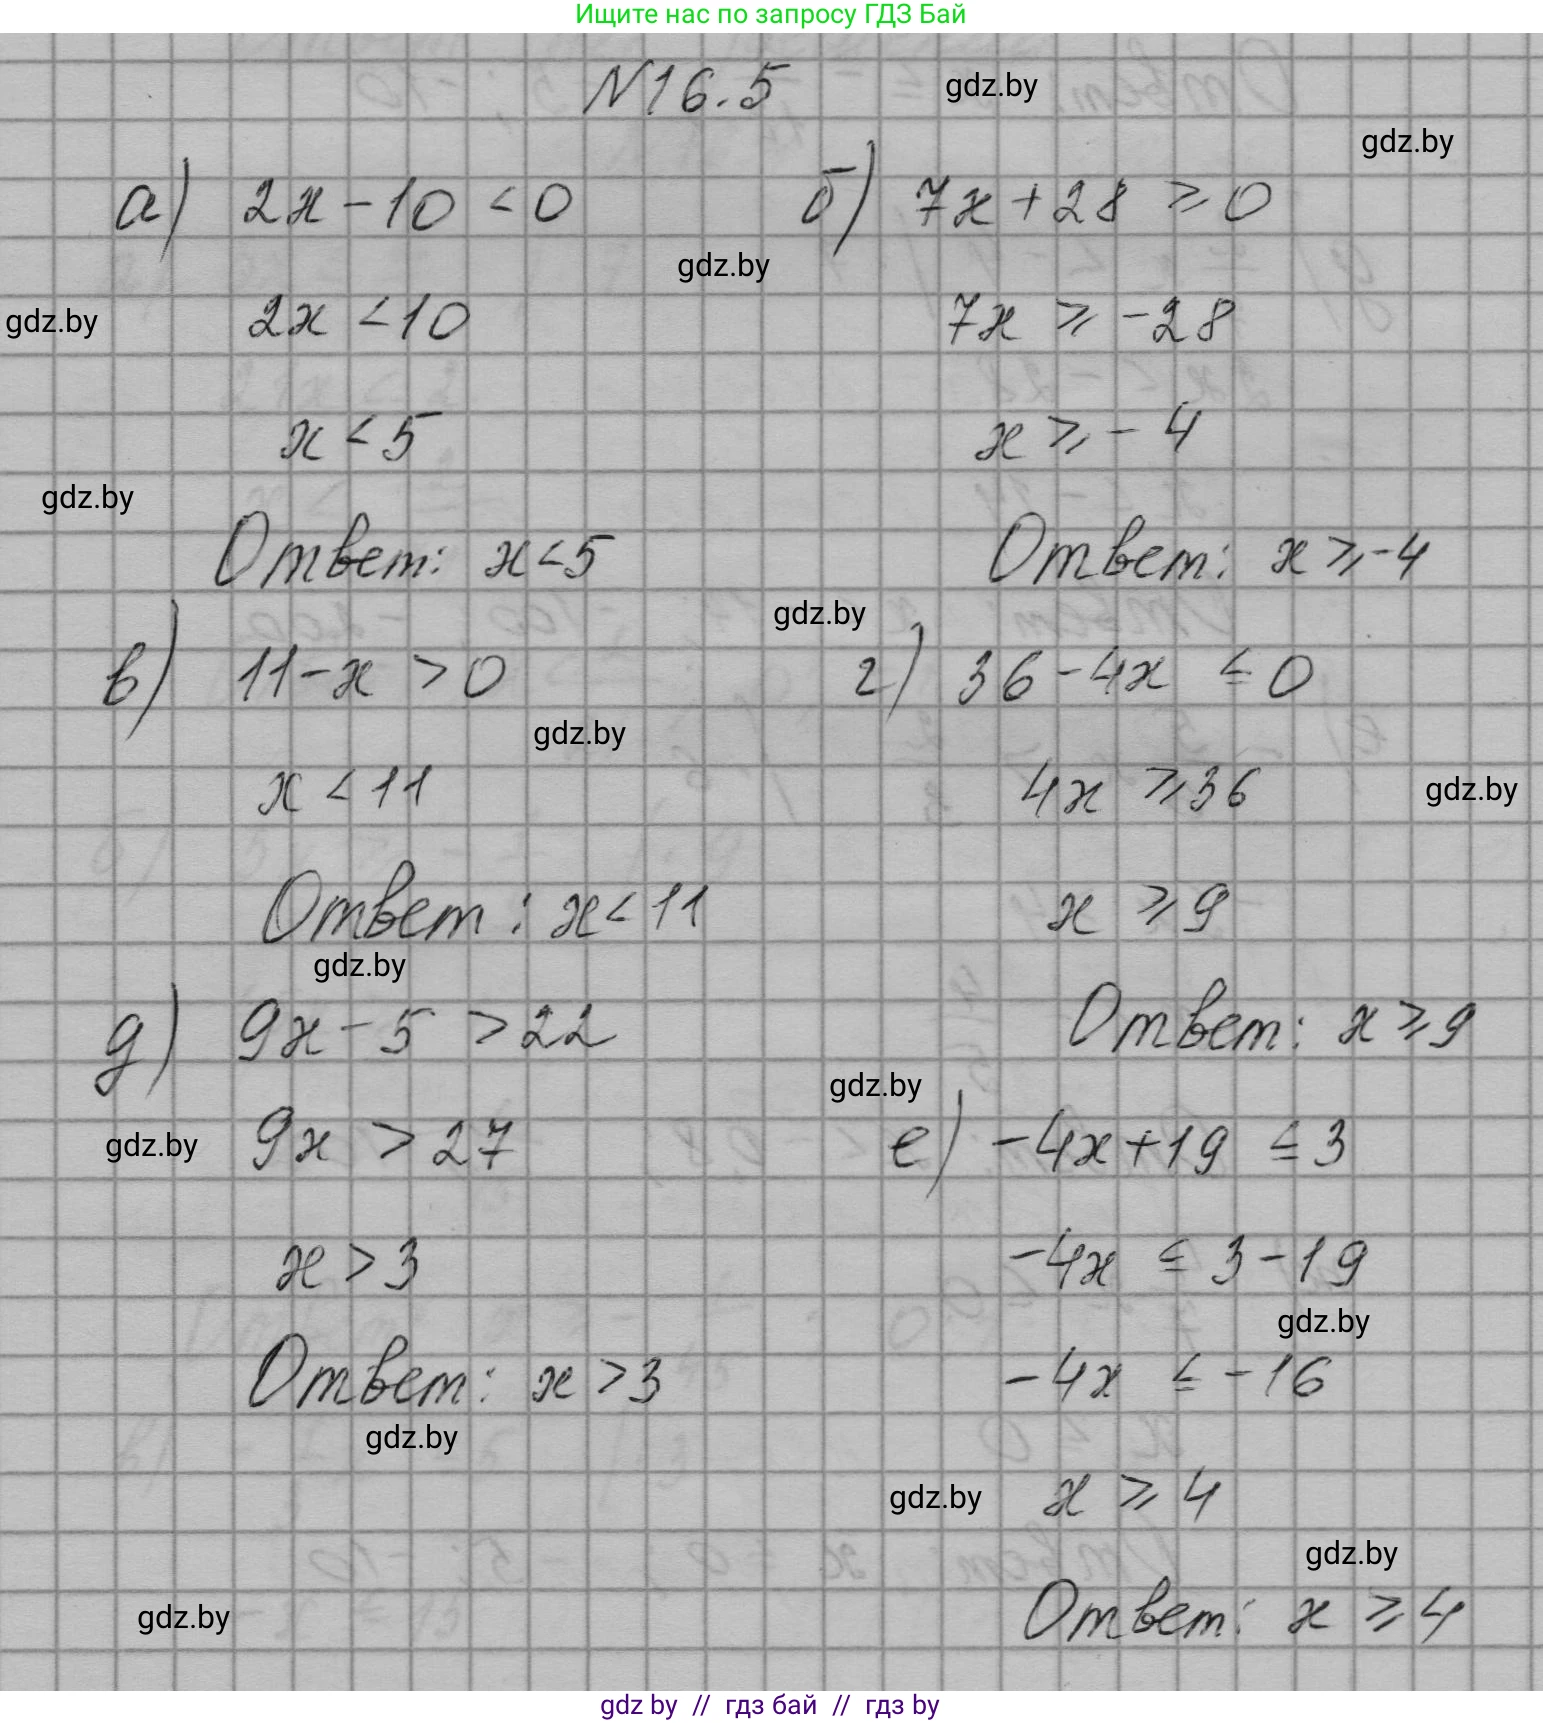 Ищите нас по запросу ГДЗ Бай
№16.5
gdz.by
gdz.by
а) 2x - 10 < 0
б) 7x + 28 ⩾ 0
gdz.by
gdz.by
2x < 10
7x ⩾ -28
x < 5
x ⩾ -4
gdz.by
Ответ: x < 5
Ответ: x ⩾ -4
gdz.by
в) 11 - x > 0
г) 36 - 4x ≤ 0
gdz.by
x < 11
4x ⩾ 36
gdz.by
Ответ: x < 11
x ⩾ 9
gdz.by
д) 9x - 5 > 22
Ответ: x ⩾ 9
gdz.by
gdz.by
9x > 27
е) -4x + 19 ≤ 3
x > 3
-4x ≤ 3 - 19
gdz.by
Ответ: x > 3
-4x ≤ -16
gdz.by
gdz.by
x ⩾ 4
gdz.by
gdz.by
Ответ: x ⩾ 4
gdz by // гдз бай // гдз by